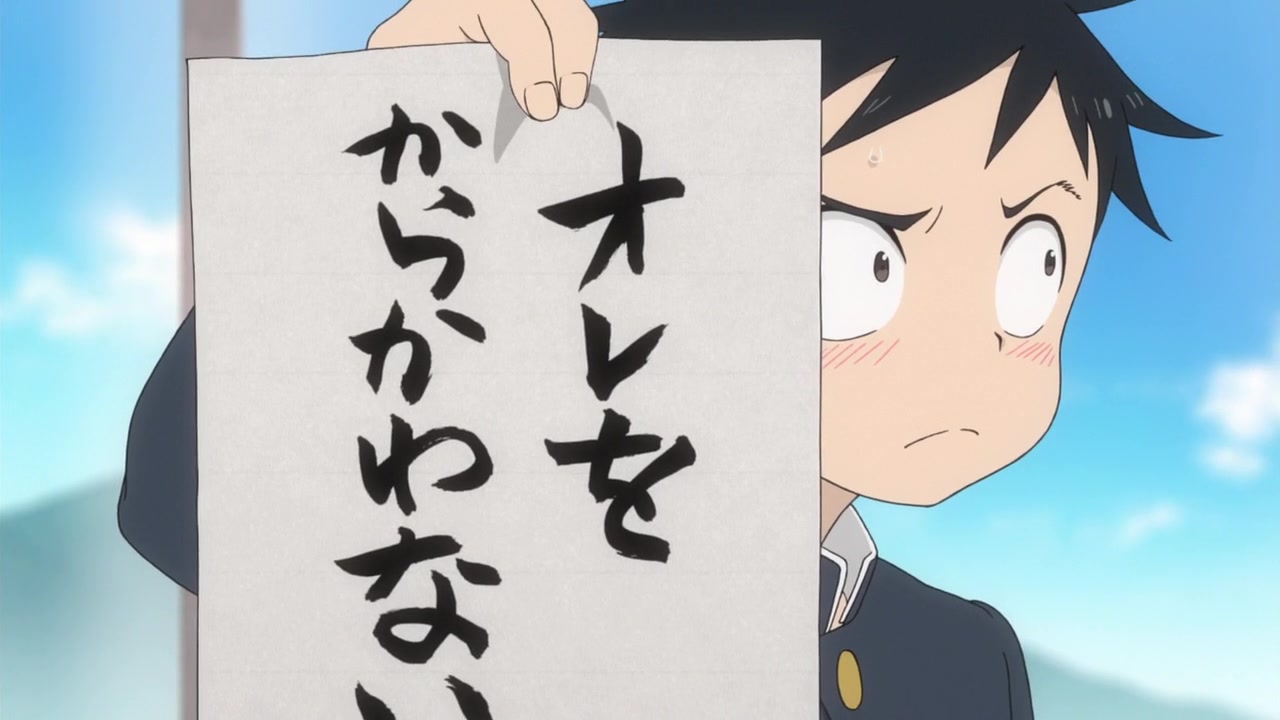 オレを
からかわない